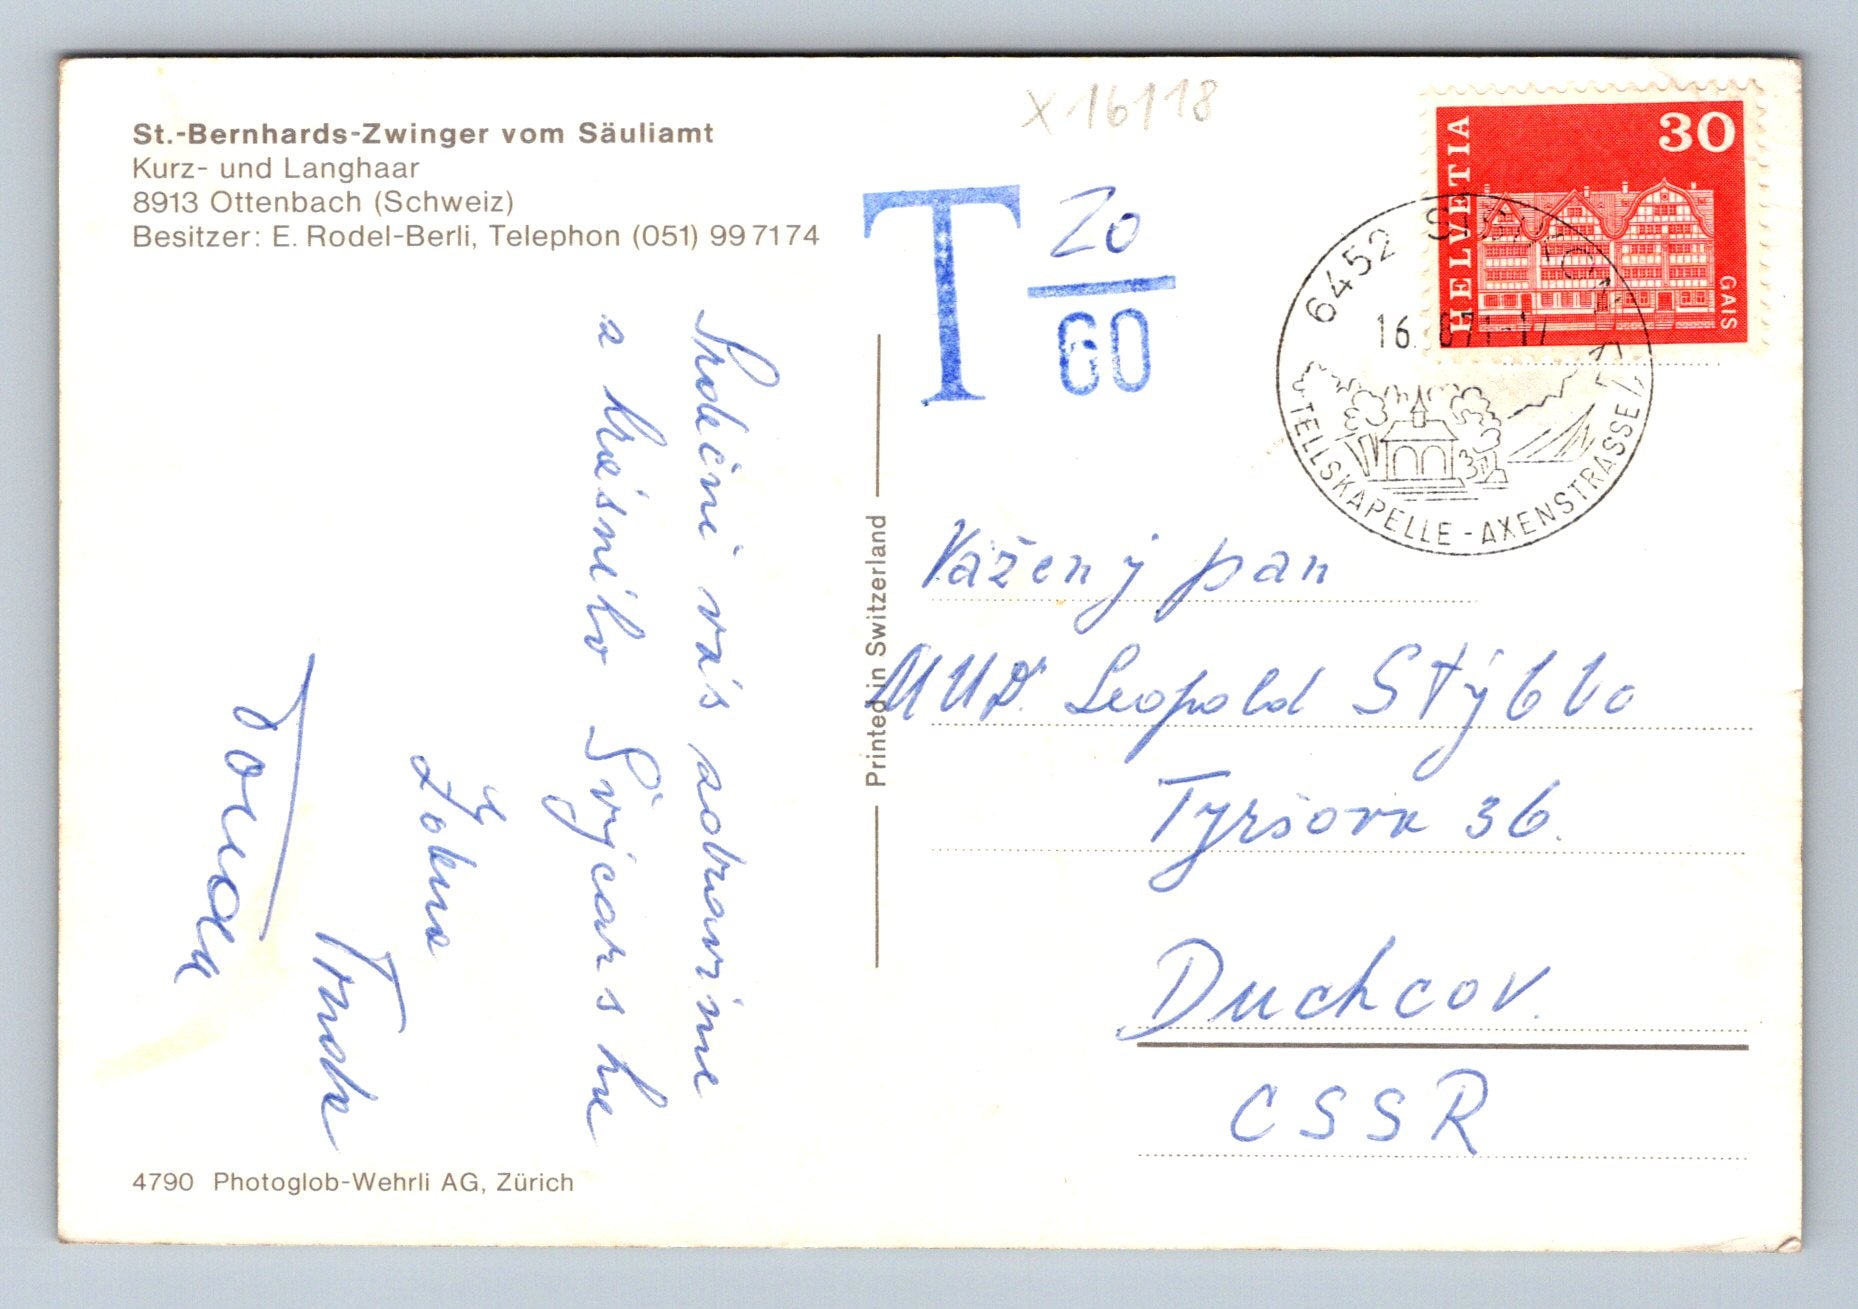 St.-Bernhards-Zwinger vom Säuliamt
Kurz- und Langhaar
8913 Ottenbach (Schweiz)
Besitzer: E. Rodel-Berli, Telephon (051) 99 71 74
X 16118
T 20
60
HELVETIA
30
GAIS
6452 SISIKON
16. 71-17
TELLSKAPELLE - AXENSTRASSE
Srdečně vás zdravíme
z krásného Švýcarska
Printed in Switzerland
Vážený pan
MUDr Leopold Stýblo
Tyršova 36.
Duchcov.
CSSR
4790 Photoglob-Wehrli AG, Zürich